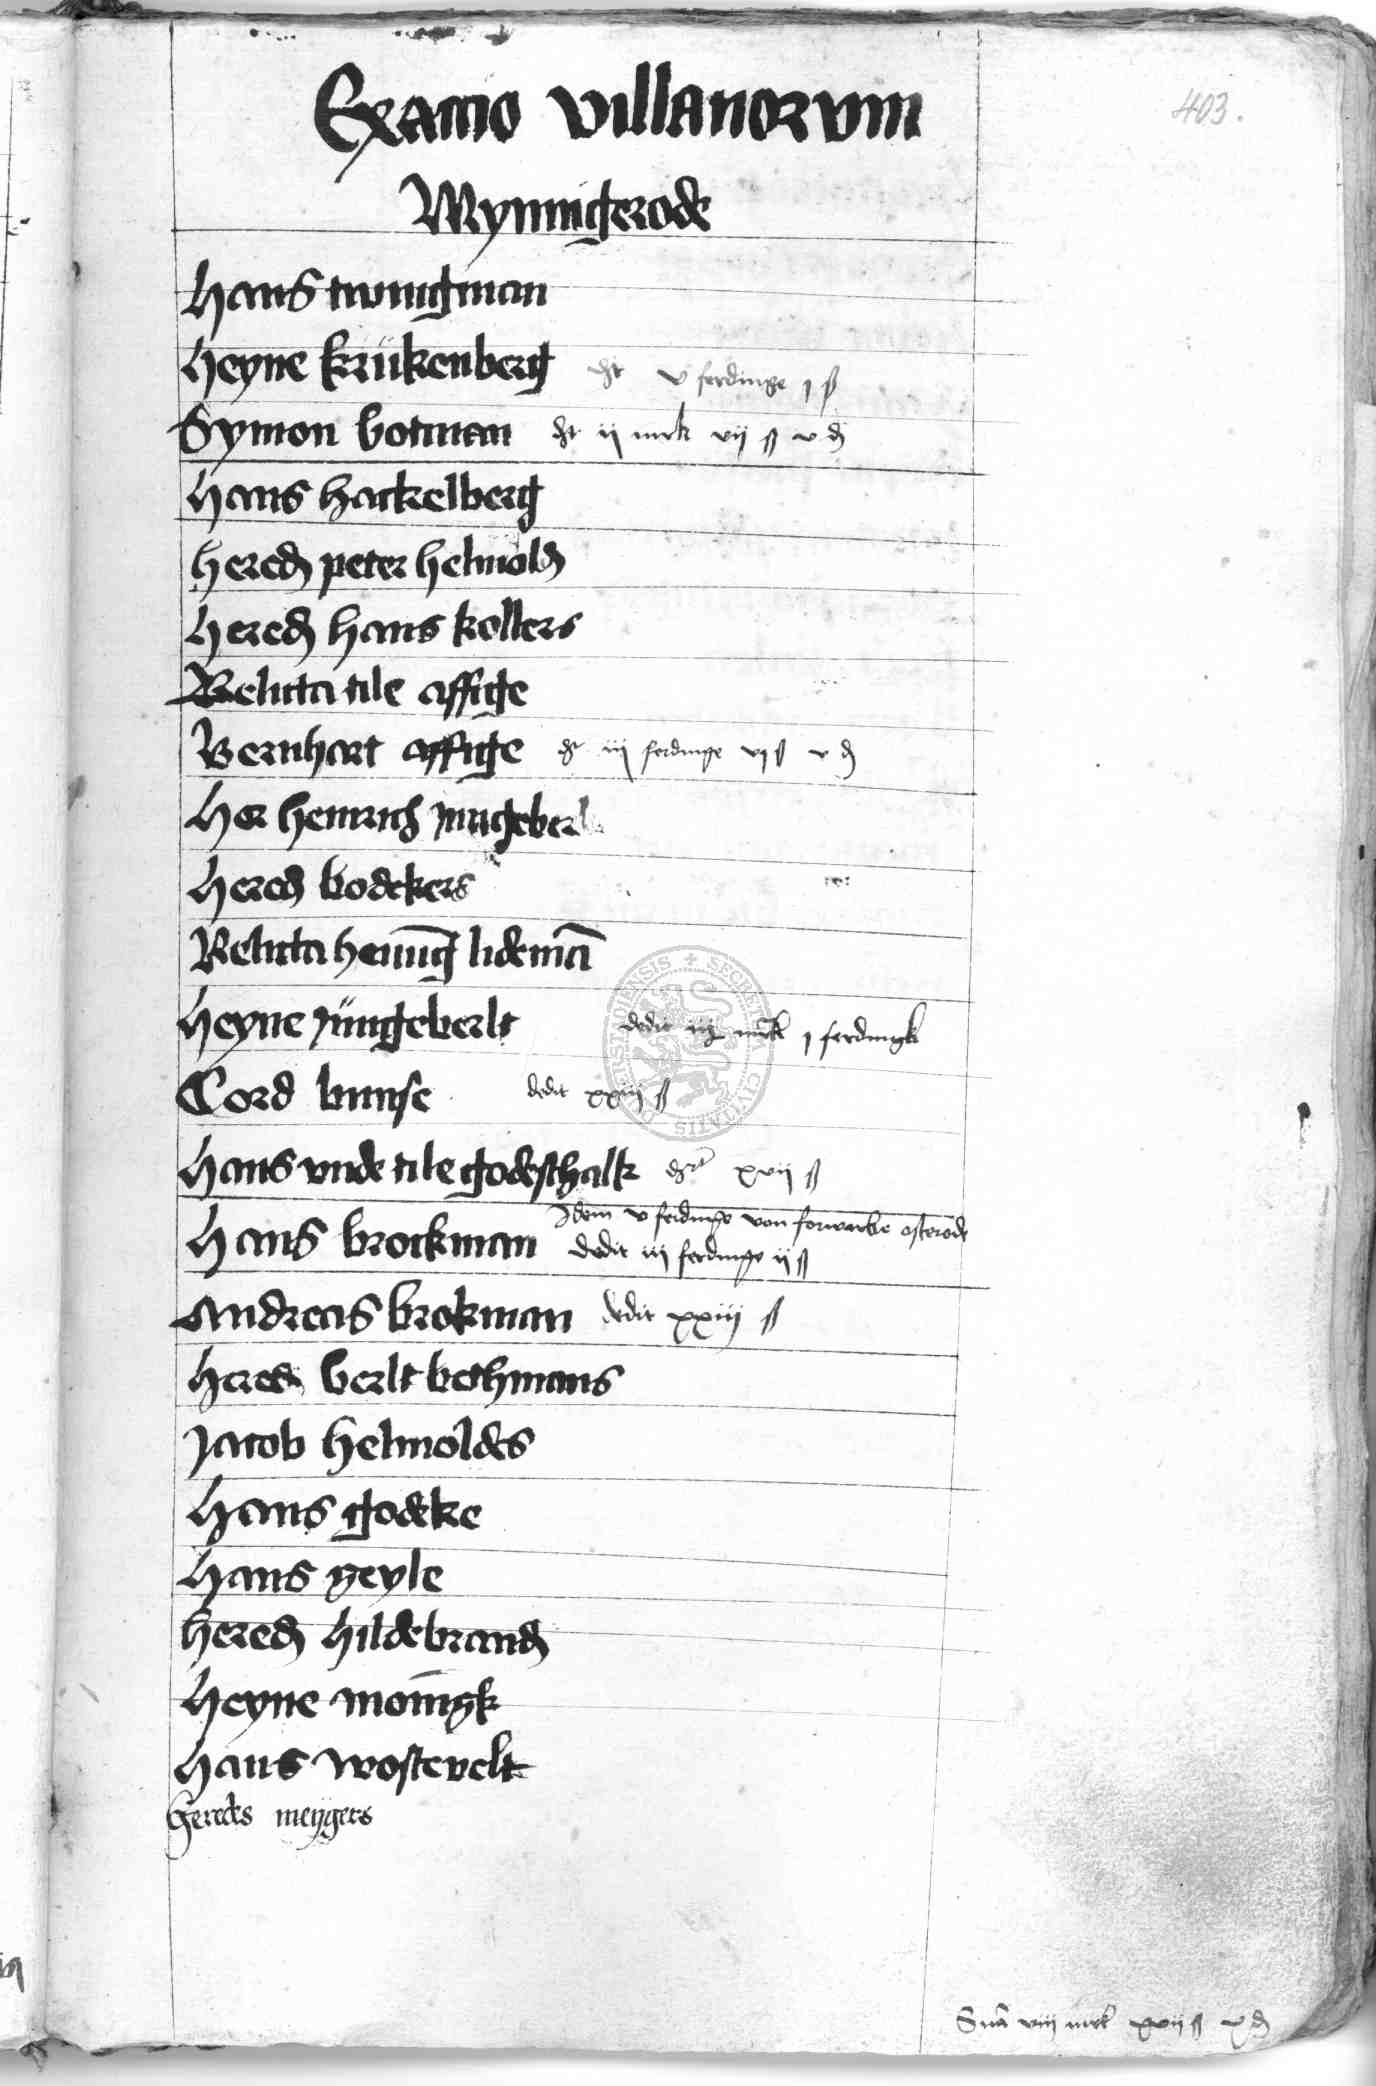 403.
Exactio villanorum
Wynnigerode
Hans twnigman
Heyne krukenberg dt v ferdinge j ß
Symon botman dt ij mrk vij ß v d
Hans hackelberg
Hered peter helmold
Hered hans kollers
Relicta tile affige
Bernhart affige dt iij ferdinge vj ß v d
Her henrich
Hered bodekers
Relicta hennig lidemā
Heyne Jungeberlt dedit mrk j ferdingk
Cord bunse dedit xxiij ß
Hans vnde tile godeschalk dt xvij ß
Idem v ferdinge von forwarke osterode
Hans brockman dedit iij ferdinge ij ß
Andreas brokman dedit xxiij ß
Hered berlt bethmans
Jacob helmoldes
Hans godeke
Hans geyle
Hered hildebrand
Heyne monīgk
Hans wostevelt
Heredes meygers
Sūa viij mrk xvij ß v d
SECRETA CIVITATIS